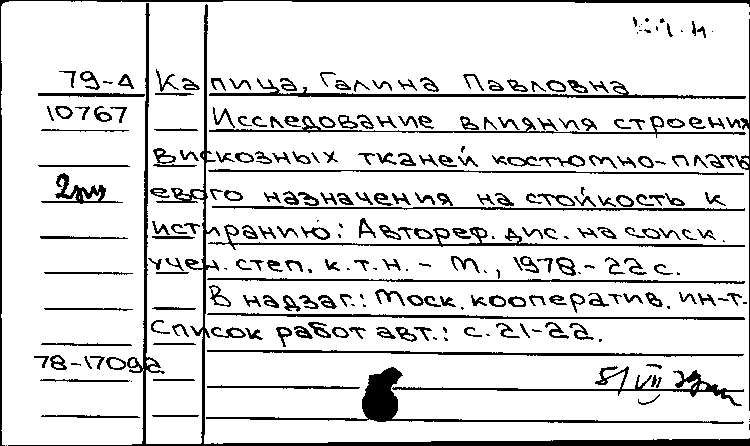 к.т.н.
79-А Капица, Галина Павловна
10767 Исследование влияния строения
вискозных тканей костюмно-плать
2эк евого назначения на стойкость к
истиранию: Автореф. дис. на соиск.
учен. степ. к.т.н. - М., 1978.- 22 с.
В надзаг.: Моск. кооператив. ин-т.
Список работ авт.: с. 21-22.
78-17092
5/VII